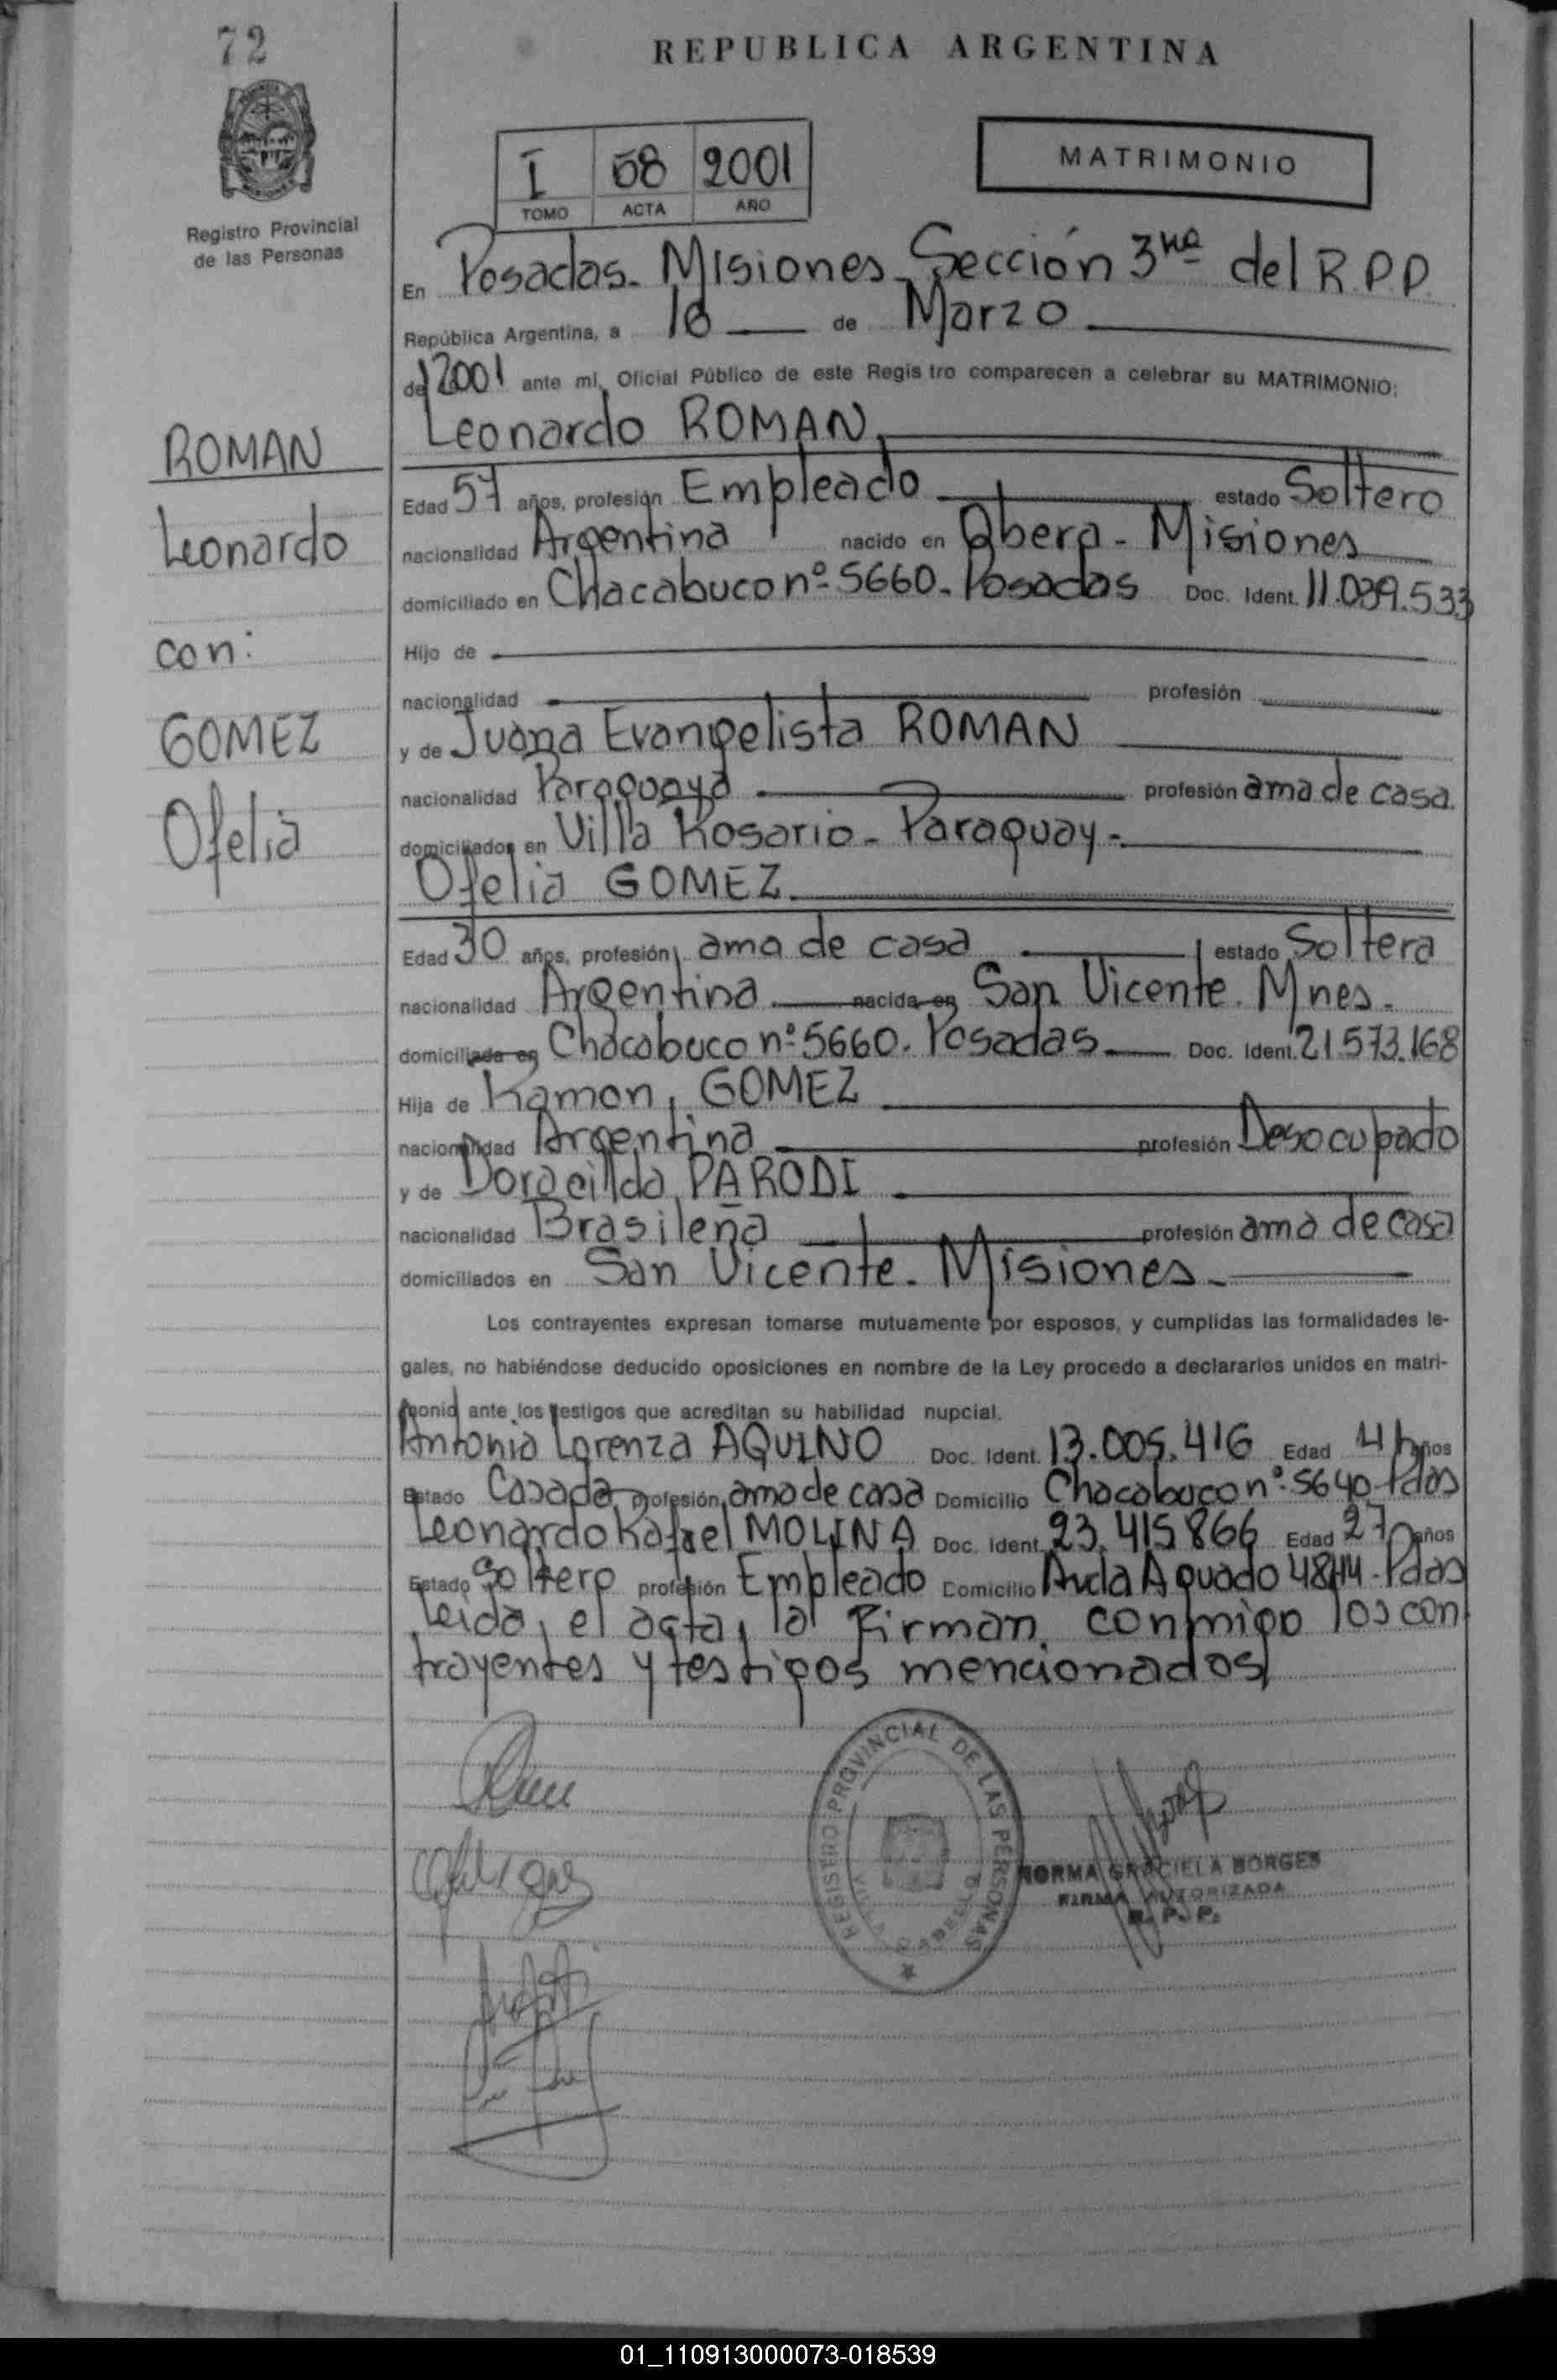 72
REPUBLICA ARGENTINA
I 58 2001
TOMO ACTA AÑO
MATRIMONIO
Registro Provincial
de las Personas
En Posadas. Misiones. Sección 3ra del R.P.P.
República Argentina, a 16 de Marzo
de 2001 ante mí, Oficial Público de este Registro comparecen a celebrar su MATRIMONIO:
Leonardo ROMAN
ROMAN
Edad 57 años, profesión Empleado estado Soltero
Leonardo
nacionalidad Argentina nacido en Obera - Misiones
domiciliado en Chacabuco nº 5660. Posadas Doc. Ident. 11.039.533
con:
Hijo de
nacionalidad profesión
GOMEZ
y de Juana Evangelista ROMAN
nacionalidad Paraguaya profesión ama de casa.
Ofelia
domiciliados en Villa Rosario - Paraguay -
Ofelia GOMEZ.
Edad 30 años, profesión ama de casa estado Soltera
nacionalidad Argentina nacida en San Vicente. Mnes.
domiciliada en Chacabuco nº 5660. Posadas Doc. Ident. 21.573.168
Hija de Ramon, GOMEZ
nacionalidad Argentina profesión Desocupado
y de Doracilda, PARODI
nacionalidad Brasileña profesión ama de casa
domiciliados en San Vicente. Misiones
Los contrayentes expresan tomarse mutuamente por esposos, y cumplidas las formalidades le-
gales, no habiéndose deducido oposiciones en nombre de la Ley procedo a declararlos unidos en matri-
monio ante los testigos que acreditan su habilidad nupcial.
Antonia Lorenza AQUINO Doc. Ident. 13.005.416 Edad 41 años
Estado Casada, profesión, ama de casa Domicilio Chacabuco nº 5640. Pdas
Leonardo Rafael MOLINA Doc. Ident. 23.415866 Edad 27 años
Estado Soltero profesión Empleado Domicilio Avda Aguado 4844. Pdas
Leida, el acta, la Firman, conmigo los con
trayentes y testigos mencionados
REGISTRO PROVINCIAL DE LAS PERSONAS
NORMA GRACIELA BORGES
FIRMA AUTORIZADA
R. P. P.
01_110913000073-018539